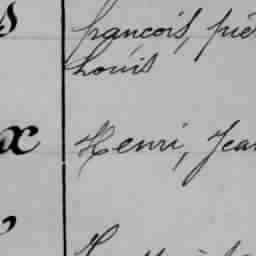 s françois, pie
Louis
x Henri, Jean